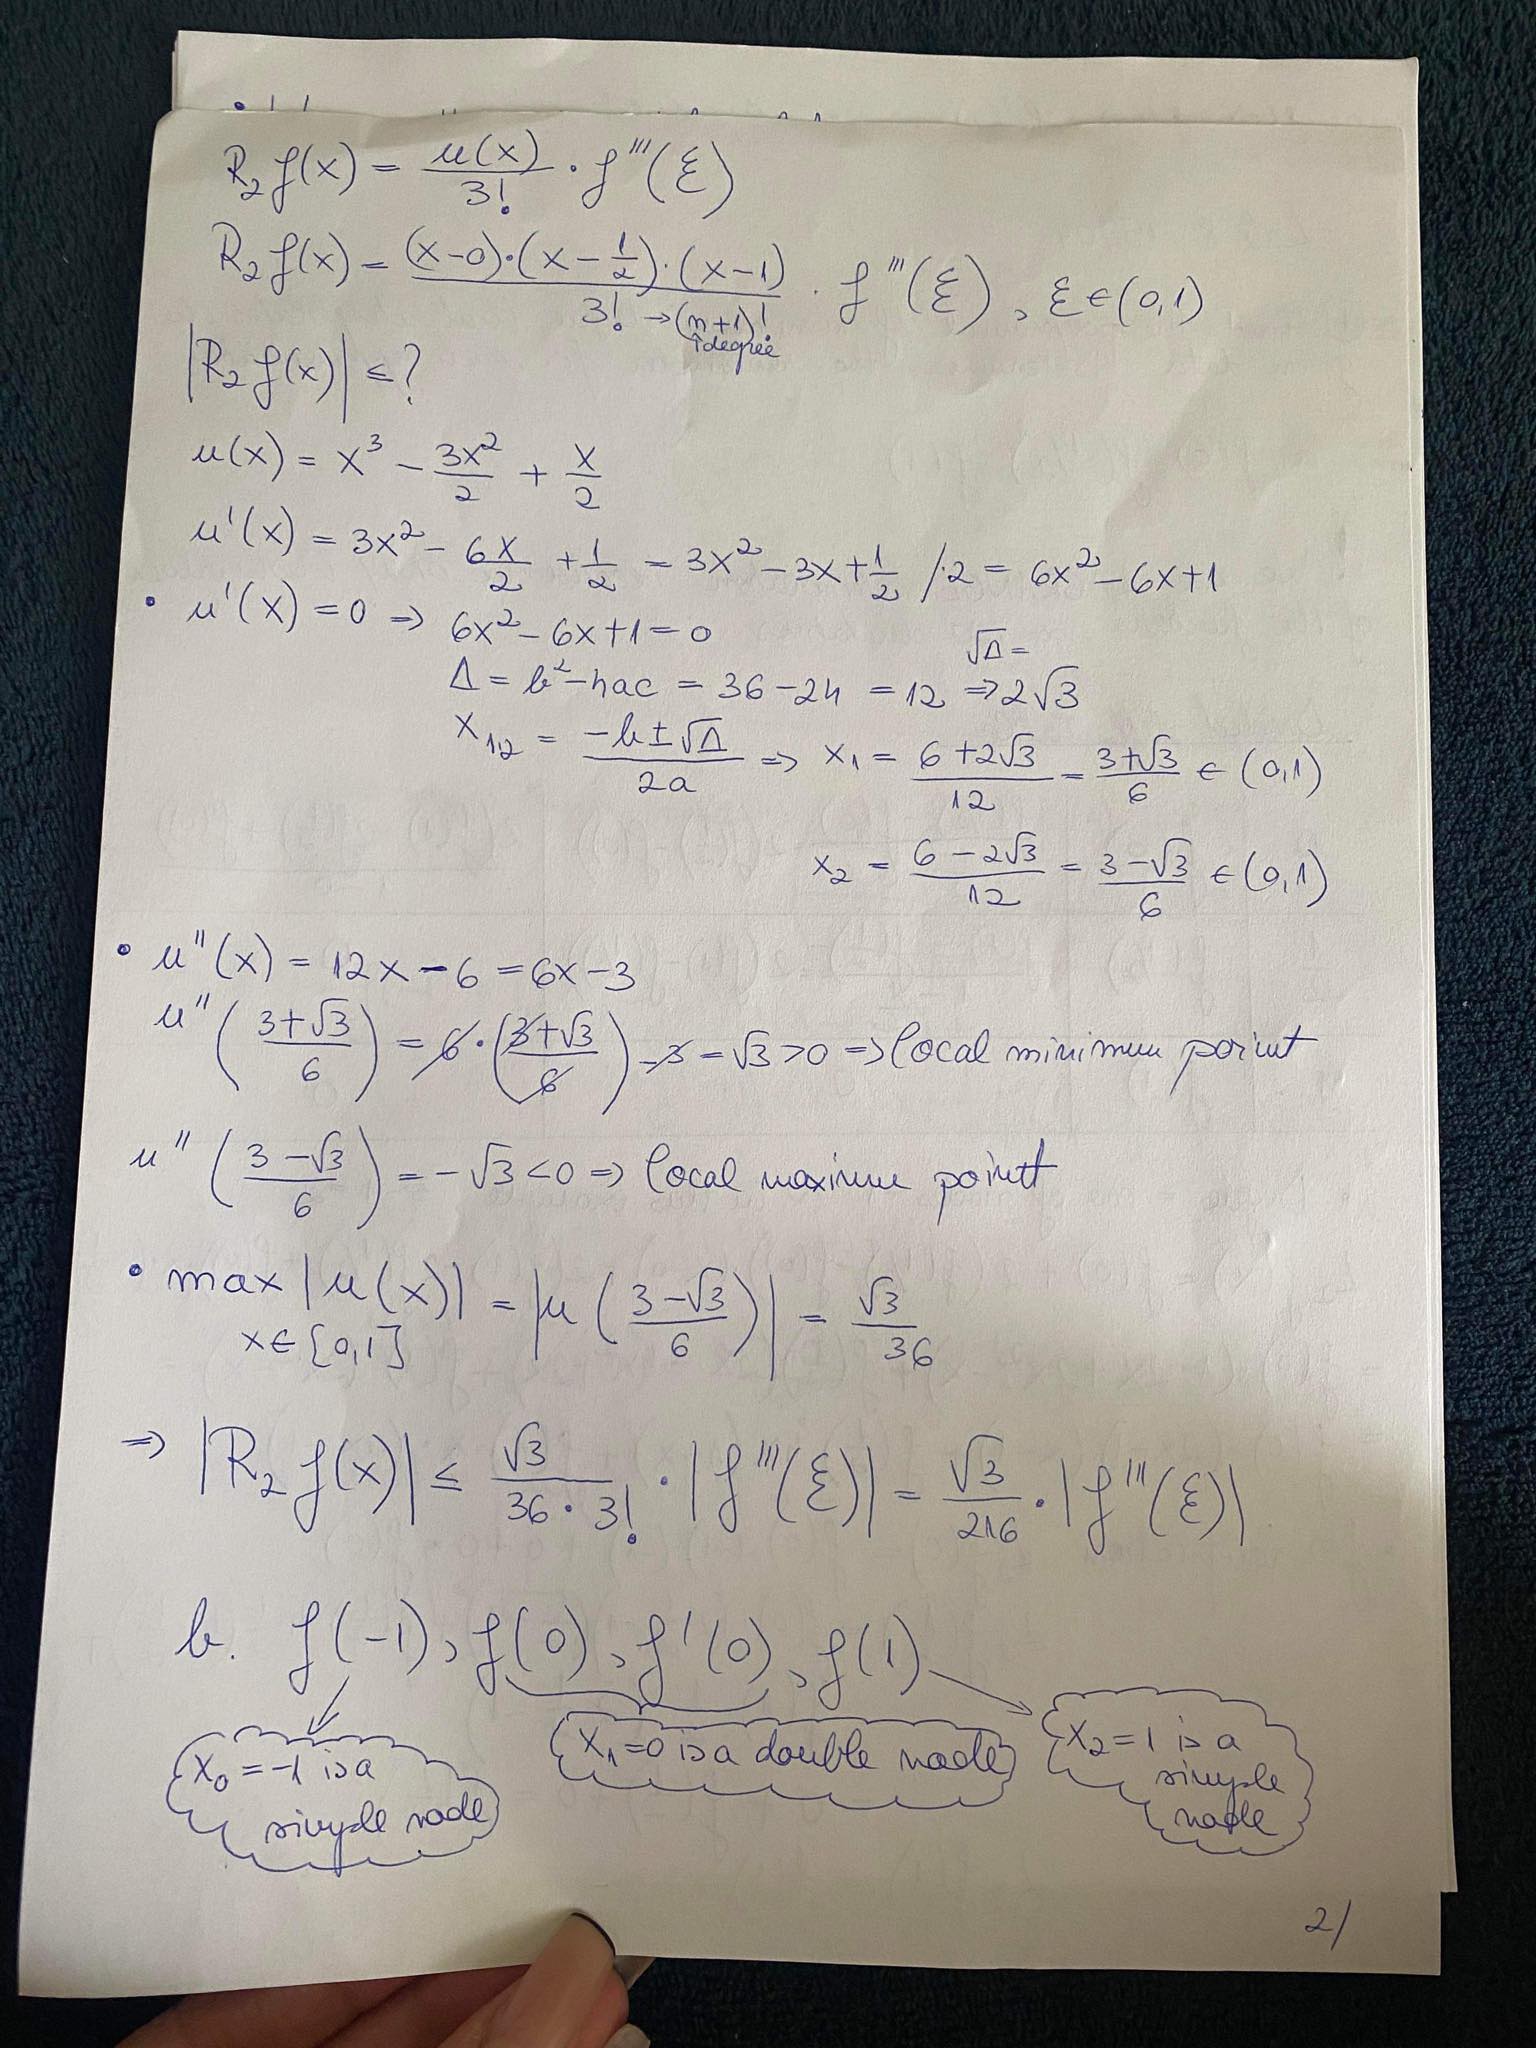 R₂f(x) = u(x)/3! · f'''(ξ)
R₂f(x) = (x-0)·(x-1/2)·(x-1)/3! · f'''(ξ), ξ ∈ (0,1)
→ (n+1)!
↑degree
|R₂f(x)| ≤ ?
u(x) = x³ - 3x²/2 + x/2
u'(x) = 3x² - 6x/2 + 1/2 = 3x² - 3x + 1/2 /·2 = 6x² - 6x + 1
• u'(x) = 0 ⇒ 6x² - 6x + 1 = 0
√Δ =
Δ = b² - 4ac = 36 - 24 = 12 ⇒ 2√3
x₁,₂ = (-b ± √Δ)/2a ⇒ x₁ = (6 + 2√3)/12 = (3+√3)/6 ∈ (0,1)
x₂ = (6 - 2√3)/12 = (3-√3)/6 ∈ (0,1)
• u''(x) = 12x - 6 = 6x - 3
u''((3+√3)/6) = 6·((3+√3)/6) - 3 = √3 > 0 ⇒ local minimum point
u''((3-√3)/6) = -√3 < 0 ⇒ local maximum point
• max |u(x)| = |u((3-√3)/6)| = √3/36
x ∈ [0,1]
⇒ |R₂f(x)| ≤ √3/(36·3!) · |f'''(ξ)| = √3/216 · |f'''(ξ)|
b. f(-1), f(0), f'(0), f(1)
x₀ = -1 is a
simple node
x₁ = 0 is a double node
x₂ = 1 is a
simple
node
2/